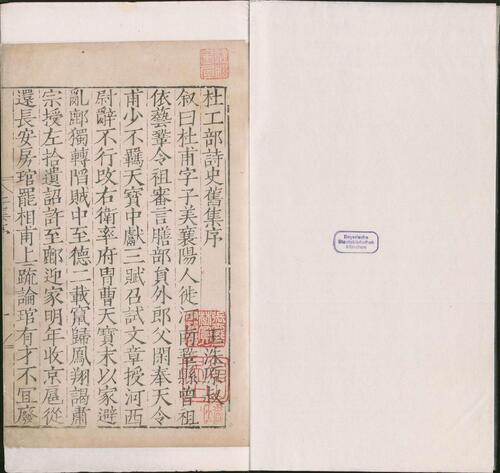 杜工部詩史舊集序
王洙原叔
叙曰杜甫字子美襄陽人徙河南鞏縣曾祖
依藝鞏令祖審言膳部貟外郎父閑奉天令
甫少不羈天寶中獻三賦召試文章授河西
尉辭不行改右衛率府胄曹天寶末以家避
亂鄜獨轉陷賊中至德二載竄歸鳳翔謁肅
宗授左拾遺詔許至鄜迎家明年收京扈從
還長安房琯罷相甫上䟽論琯有才不冝廢
Bayerische
Staatsbibliothek
München